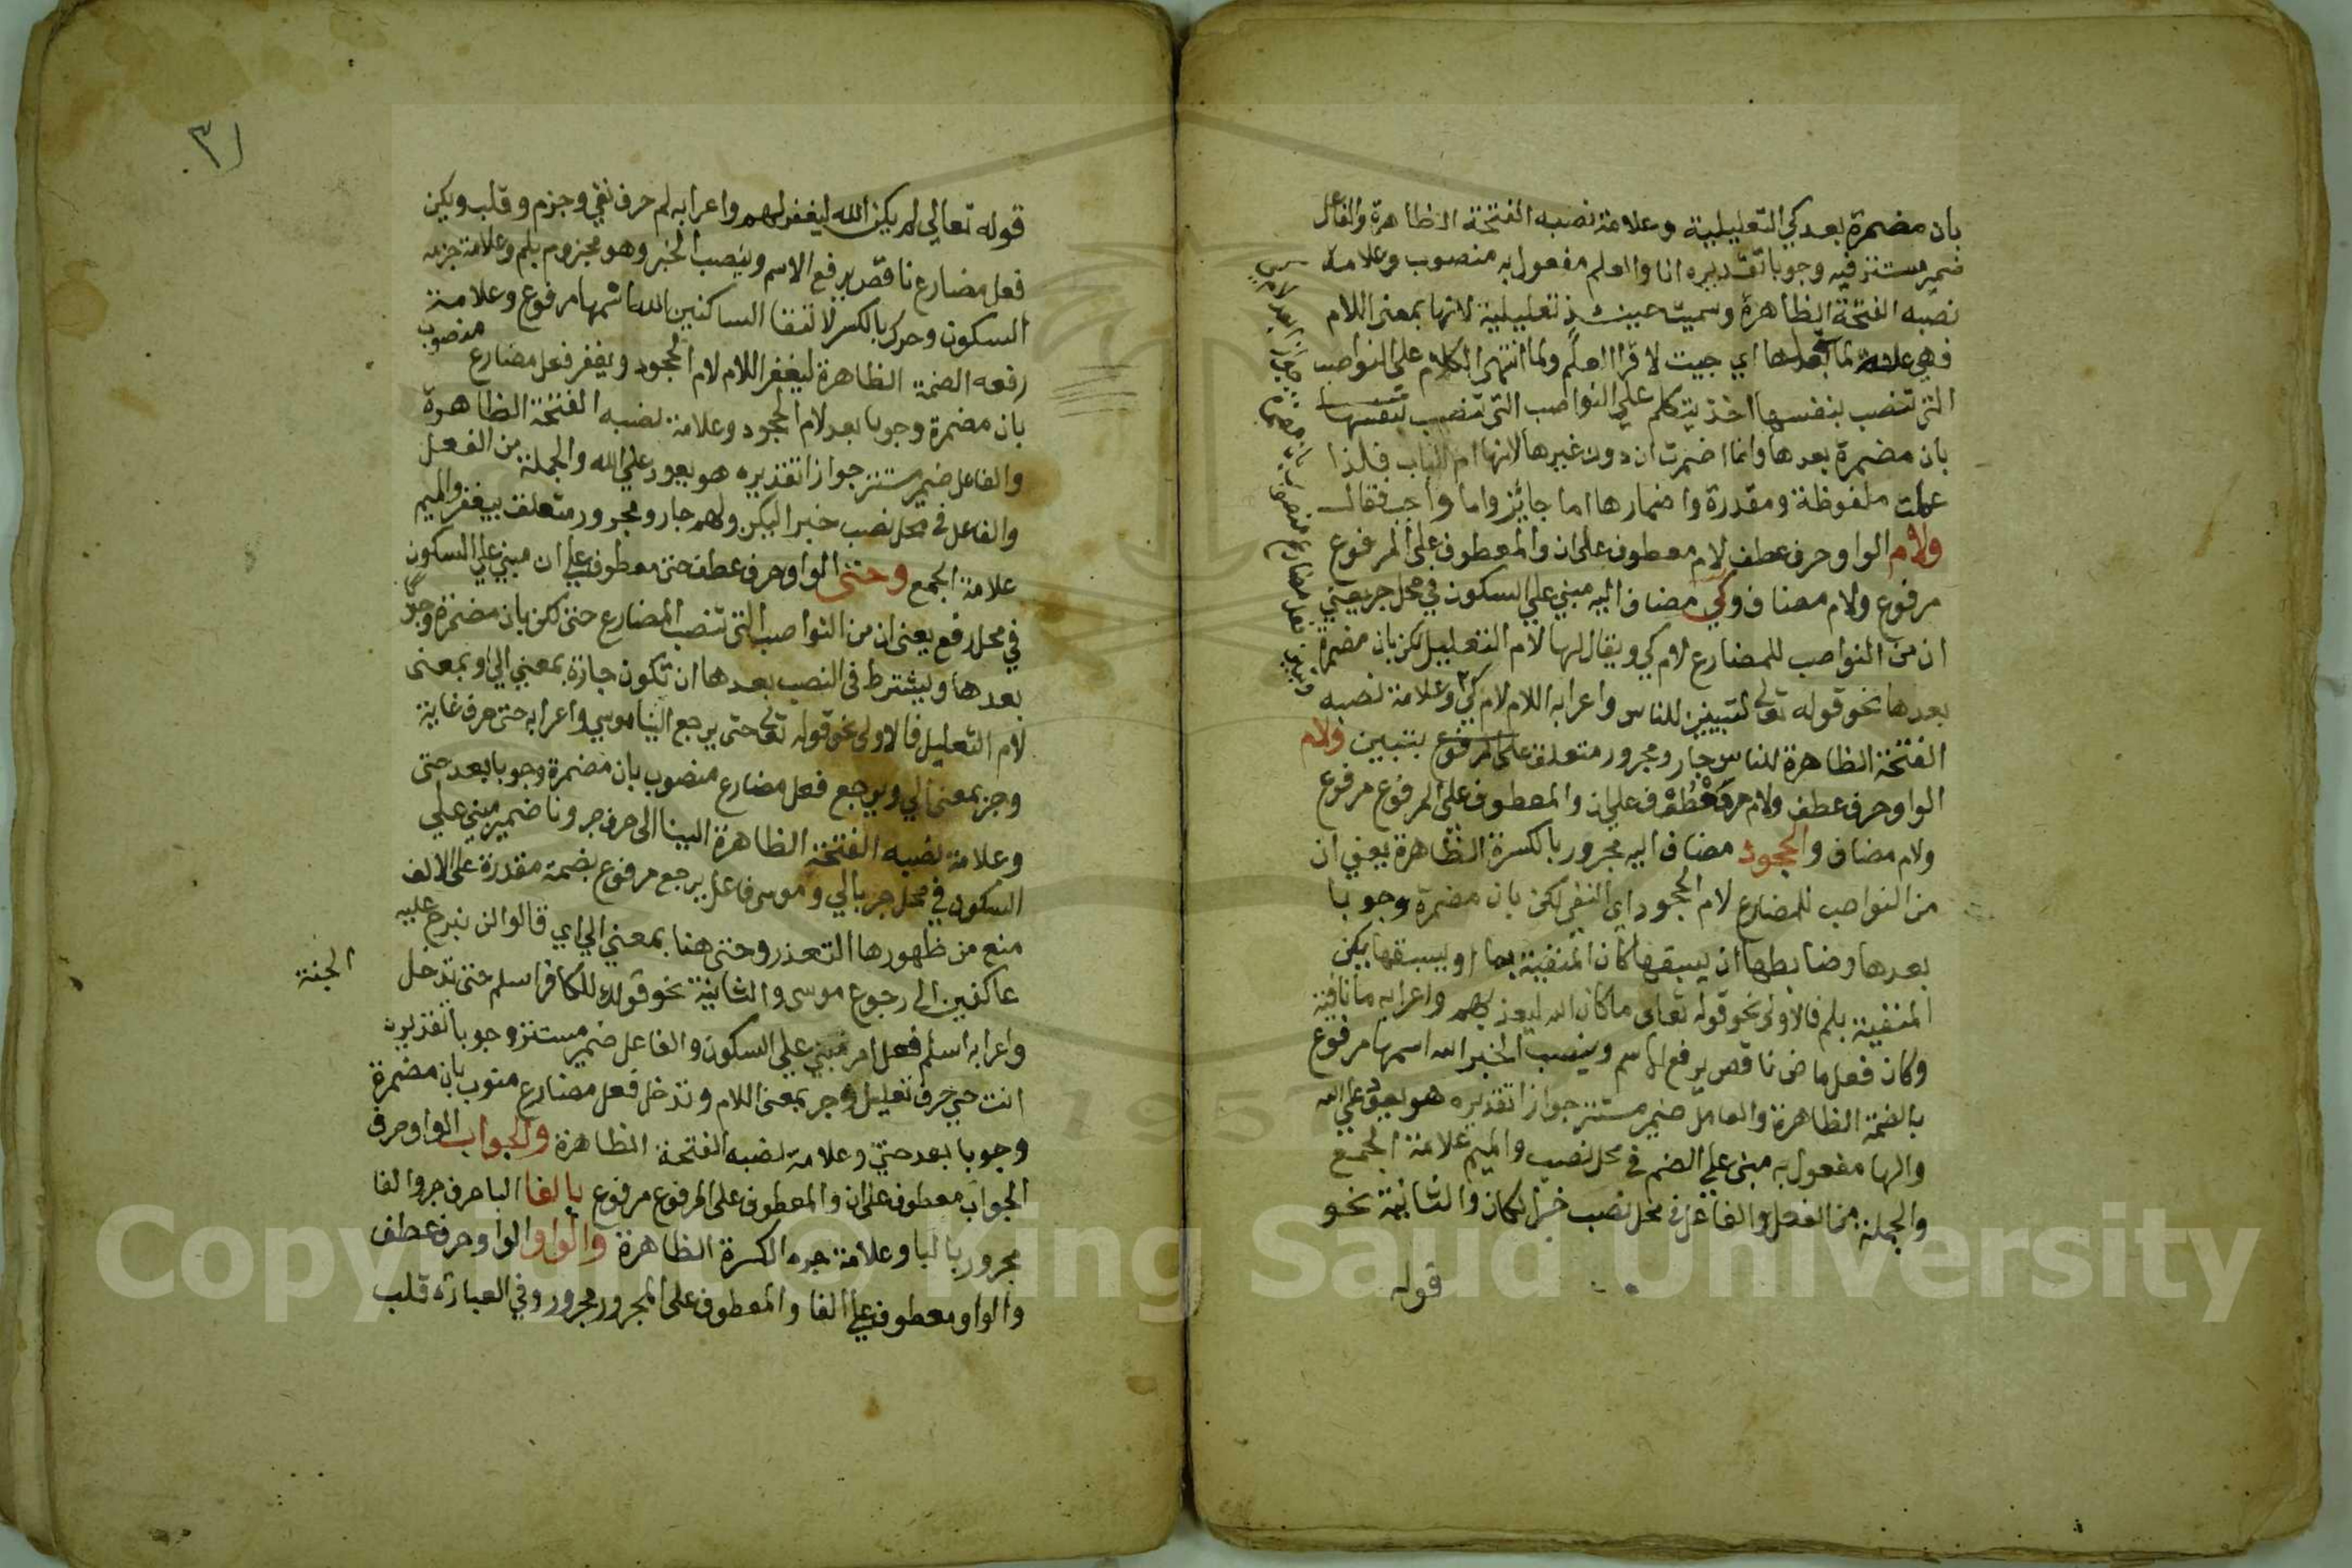 بان مضمرة بعد كي التعليلية وعلامة نصبه الفتحة الظاهرة والفاعل
ضمير مستتر فيه وجوبا تقديره انا والعلم مفعول به منصوب وعلامة
نصبه الفتحة الظاهرة وسميت حينئذ تعليلية لانها بمعنى اللام
فهي علة لما بعدها اي جيت لاقرا العلم ولما انتهى الكلام على النواصب
التي تنصب بنفسها اخذ يتكلم علي النواصب التي تنصب
بان مضمرة بعدها وانما اضمرت ان دون غيرها لانها ام الباب فلذا
عملت ملفوظة ومقدرة واضمارها اما جائز واما واجب فقال
ولام الواو حرف عطف لام معطوف على ان والمعطوف على المرفوع
مرفوع ولام مضاف وكي مضاف اليه مبني علي السكون في محل جر يعني
ان من النواصب للمضارع لام كي ويقال لها لام التعليل لكن بان مضمرة
بعدها نحو قوله تعالى لتبين للناس واعرابه اللام لام كي ٢ وعلامة نصبه
الفتحة الظاهرة للناس جار ومجرور متعلق بتبين ولام
الواو حرف عطف ولام معطوف علي ان والمعطوف على المرفوع مرفوع
ولام مضاف والجحود مضاف اليه مجرور بالكسرة الظاهرة يعني ان
من النواصب للمضارع لام الجحود اي النفي لكن بان مضمرة وجوبا
بعدها وضابطها ان يسبقها كان المنفية بما او يسبقها يكن
المنفية بلم فالاولى نحو قوله تعالى ما كان الله ليعذبهم واعرابه ما نافية
وكان فعل ماض ناقص يرفع الاسم وينصب الخبر الله اسمها مرفوع
بالضمة الظاهرة والفاعل ضمير مستتر جوازا تقديره هو يعود علي الله
والها مفعول به مبني علي الضم في محل نصب والميم علامة الجمع
والجملة من الفعل والفاعل في محل نصب خبر لكان والثانية نحو
قوله
وتبين فعل مضارع منصوب بان مضمرة جوازا بعد لام كي
٣١
قوله تعالي لم يكن الله ليغفر لهم واعرابه لم حرف نفي وجزم وقلب ويكن
فعل مضارع ناقص يرفع الاسم وينصب الخبر وهو مجزوم بلم وعلامة جزمه
السكون وحرك بالكسر لالتقا الساكنين الله اسمها مرفوع وعلامة
رفعه الضمة الظاهرة ليغفر اللام لام الجحود ويغفر فعل مضارع منصوب
بان مضمرة وجوبا بعد لام الجحود وعلامة نصبه الفتحة الظاهرة
والفاعل ضمير مستتر جوازا تقديره هو يعود علي الله والجملة من الفعل
والفاعل في محل نصب خبر اليكن ولهم جار ومجرور متعلق بيغفر والميم
علامة الجمع وحتى الواو حرف عطف حتى معطوف علي ان مبني علي السكون
في محل رفع يعني ان من النواصب التي تنصب المضارع حتى لكن بان مضمرة وجوبا
بعدها ويشترط في النصب بعدها ان تكون جارة بمعني الي او بمعنى
لام التعليل فالاولى نحو قوله تعالى حتى يرجع الينا موسي واعرابه حتى حرف غاية
وجر بمعنى الي ويرجع فعل مضارع منصوب بان مضمرة وجوبا بعد حتى
وعلامة نصبه الفتحة الظاهرة الينا الى حرف جر ونا ضمير مبني علي
السكون في محل جر بالي وموسى فاعل يرجع مرفوع بضمة مقدرة على الالف
منع من ظهورها التعذر وحتى هنا بمعني الي اي قالوا لن نبرح عليه
عاكفين الى رجوع موسى والثانية نحو قولك للكافر اسلم حتى تدخل الجنة
واعرابه اسلم فعل امر مبني علي السكون والفاعل ضمير مستتر وجوبا تقديره
انت حتي حرف تعليل وجر بمعنى اللام وتدخل فعل مضارع منوب بان مضمرة
وجوبا بعد حتي وعلامة نصبه الفتحة الظاهرة والجواب الواو حرف
الجواب معطوف على ان والمعطوف على المرفوع مرفوع بالفا البا حرف جر والفا
مجرور بالبا وعلامة جره الكسرة الظاهرة والواو الواو حرف عطف
والواو معطوف علي الفا والمعطوف على المجرور مجرور وفي العبارة قلب
Copyright © King Saud University
1957